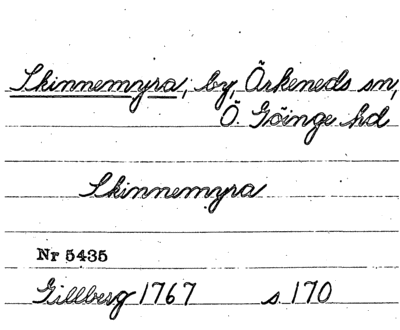 Skinnemyra, by, Örkeneds sn,
Ö. Göinge hd
Skinnemyra
Nr 5435
Gillberg 1767 s 170